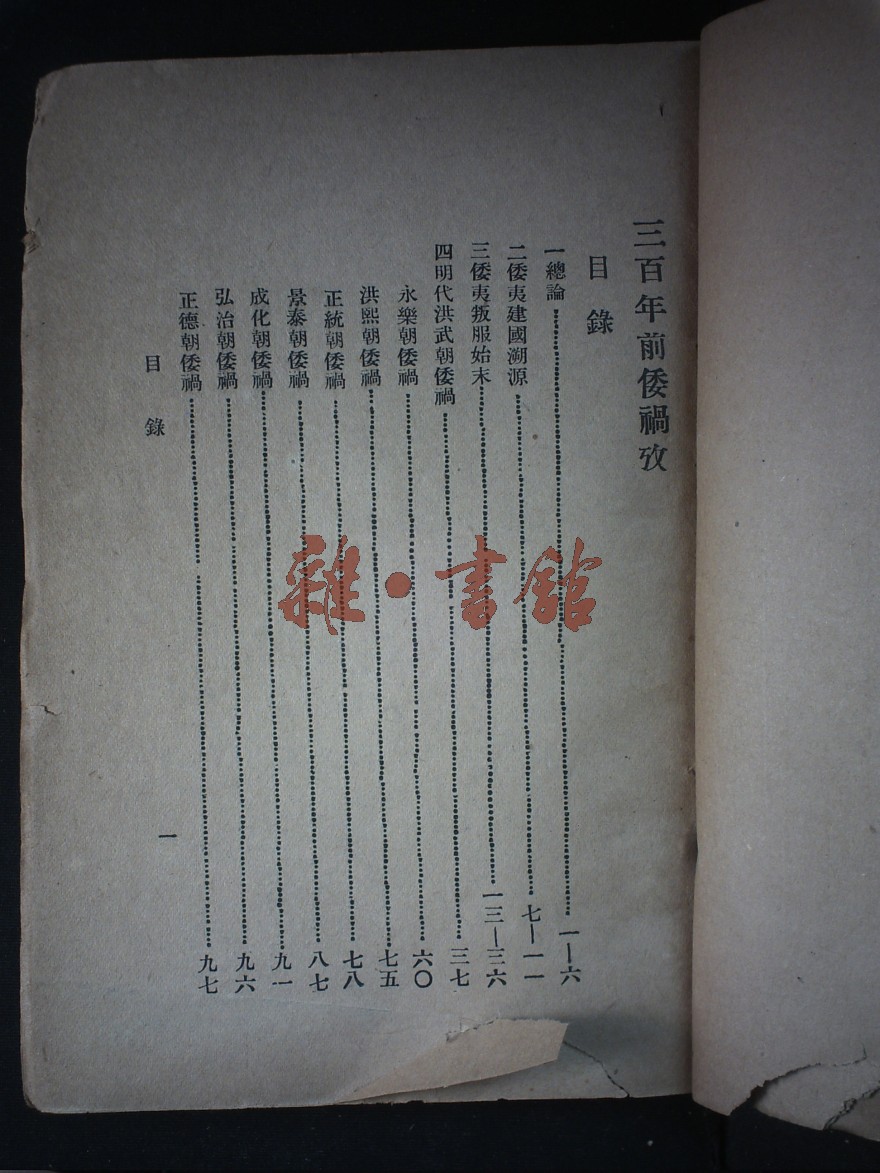 三百年前倭禍攷
目錄
一總論……一—六
二倭夷建國溯源……七—一一
三倭夷叛服始末……一三—三六
四明代洪武朝倭禍……三七
永樂朝倭禍……六〇
洪熙朝倭禍……七五
正統朝倭禍……七八
景泰朝倭禍……八七
成化朝倭禍……九一
弘治朝倭禍……九六
正德朝倭禍……九七
目錄
一
雜·書館